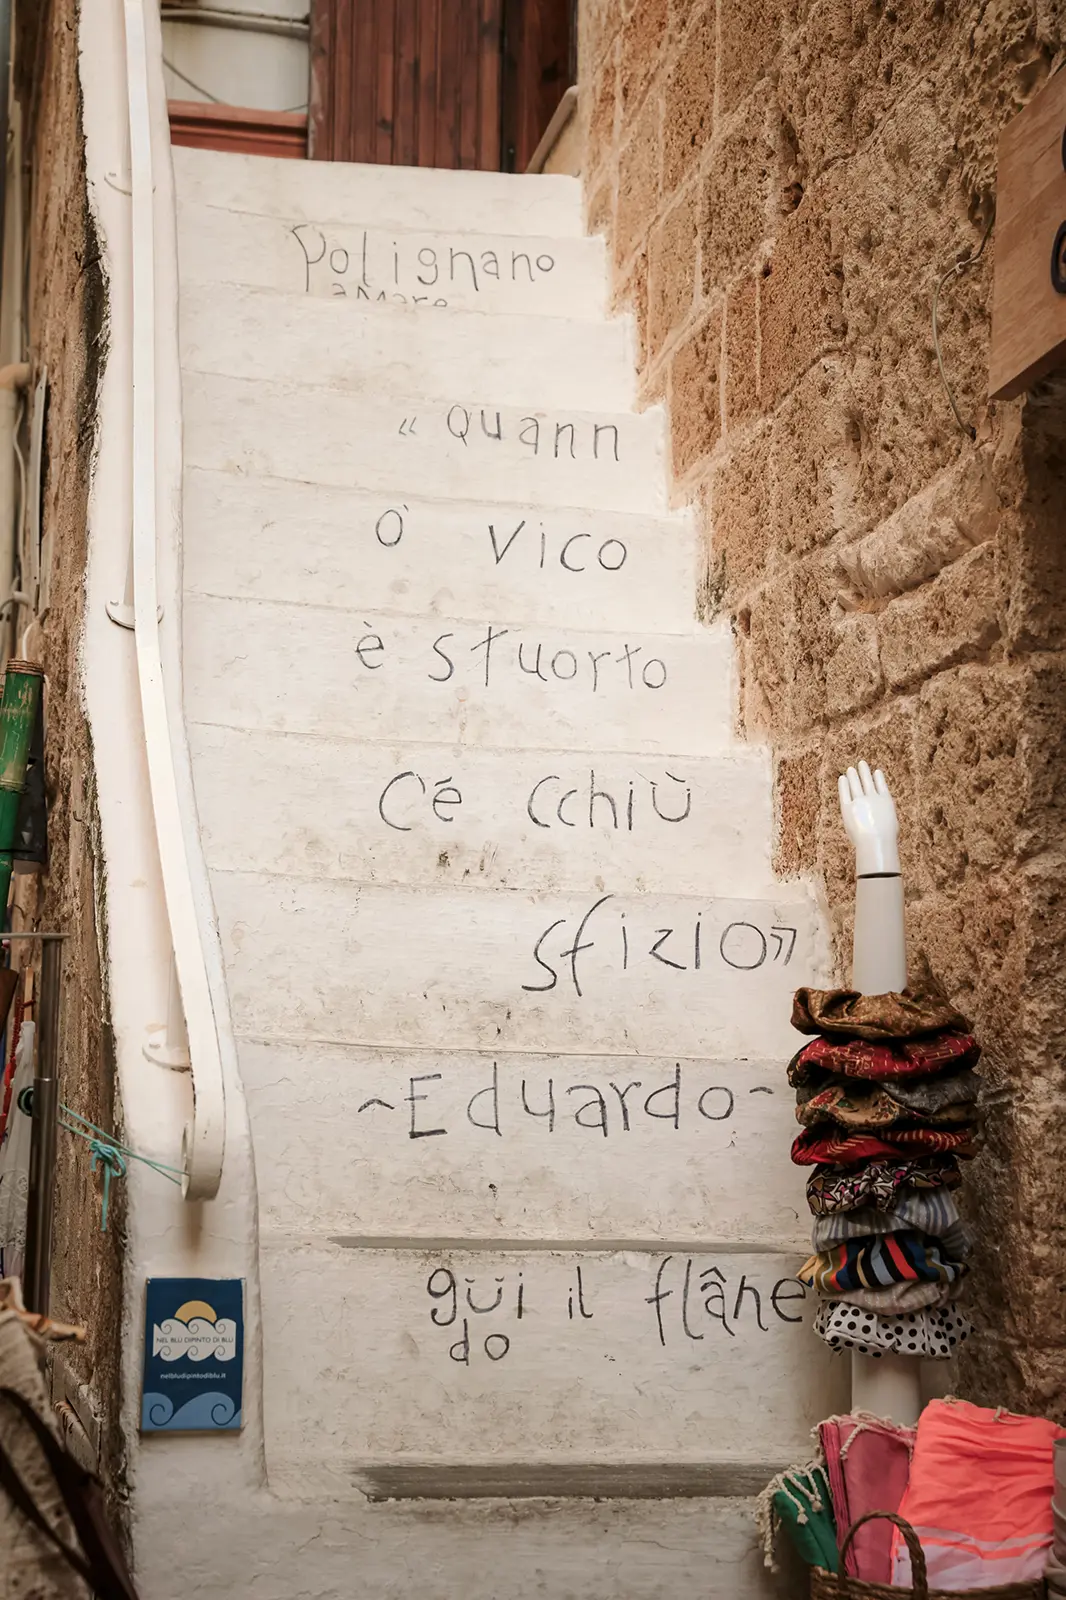 Polignano
amare
« quann
o' vico
è stuorto
C'é cchiù
sfizio»
~Eduardo~
güi il flâne
do
NEL BLU DIPINTO DI BLU
nelbludipintodiblu.it